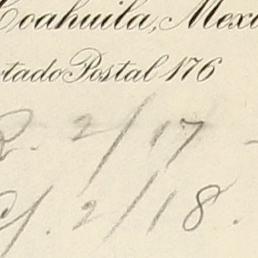 Coahuila, Mexi
rtado Postal 176
R. 2/17 -
A/. 2/18.